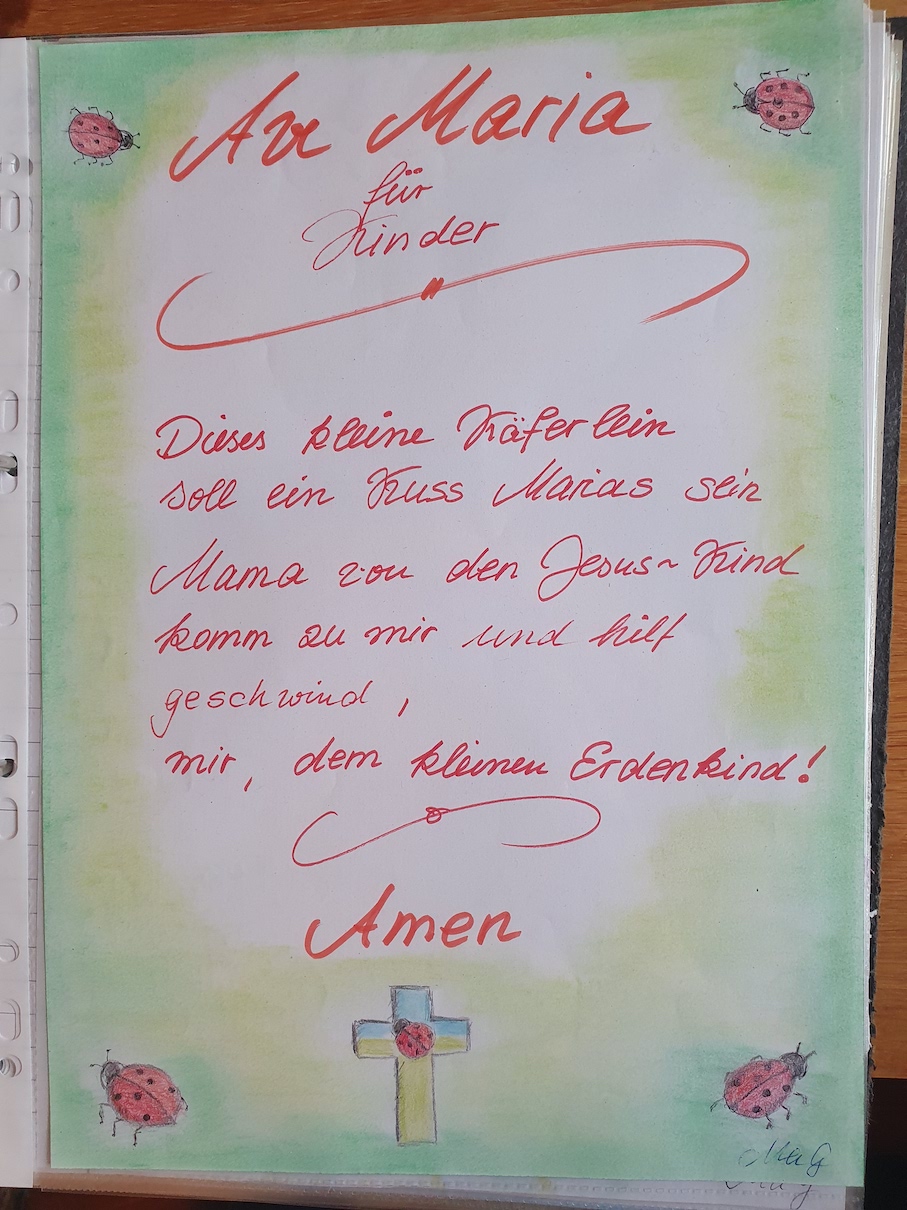 Ave Maria
für
Kinder
Dieses kleine Käferlein
soll ein Kuss Marias sein
Mama von den Jesus~Kind
komm zu mir und hilf
geschwind,
mir, dem kleinen Erdenkind!
Amen